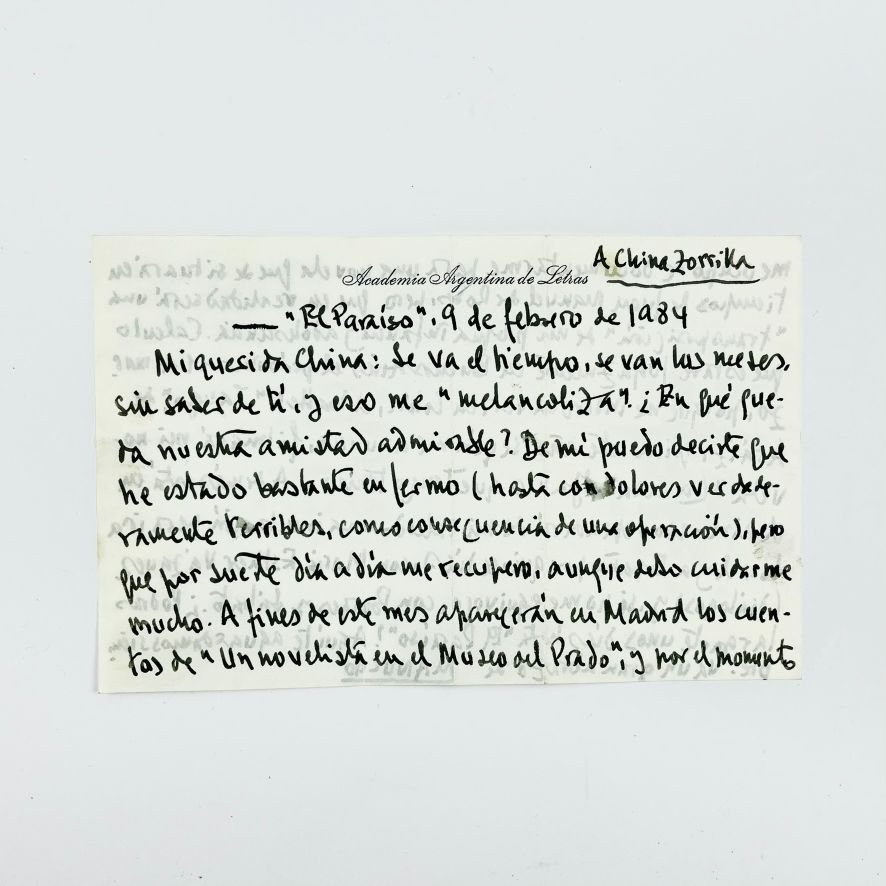 A China Zorrilla
Academia Argentina de Letras
— "El Paraíso", 9 de febrero de 1984
Mi querida China: Se va el tiempo, se van los meses,
sin saber de tí, y eso me "melancoliza". ¿En qué que-
da nuestra amistad admirable? De mí puedo decirte que
he estado bastante enfermo (hasta con dolores verdade-
ramente terribles, como consecuencia de una operación), pero
que por suerte día a día me recupero, aunque debo cuidarme
mucho. A fines de este mes aparecerán en Madrid los cuen-
tos de "Un novelista en el Museo del Prado", y por el momento